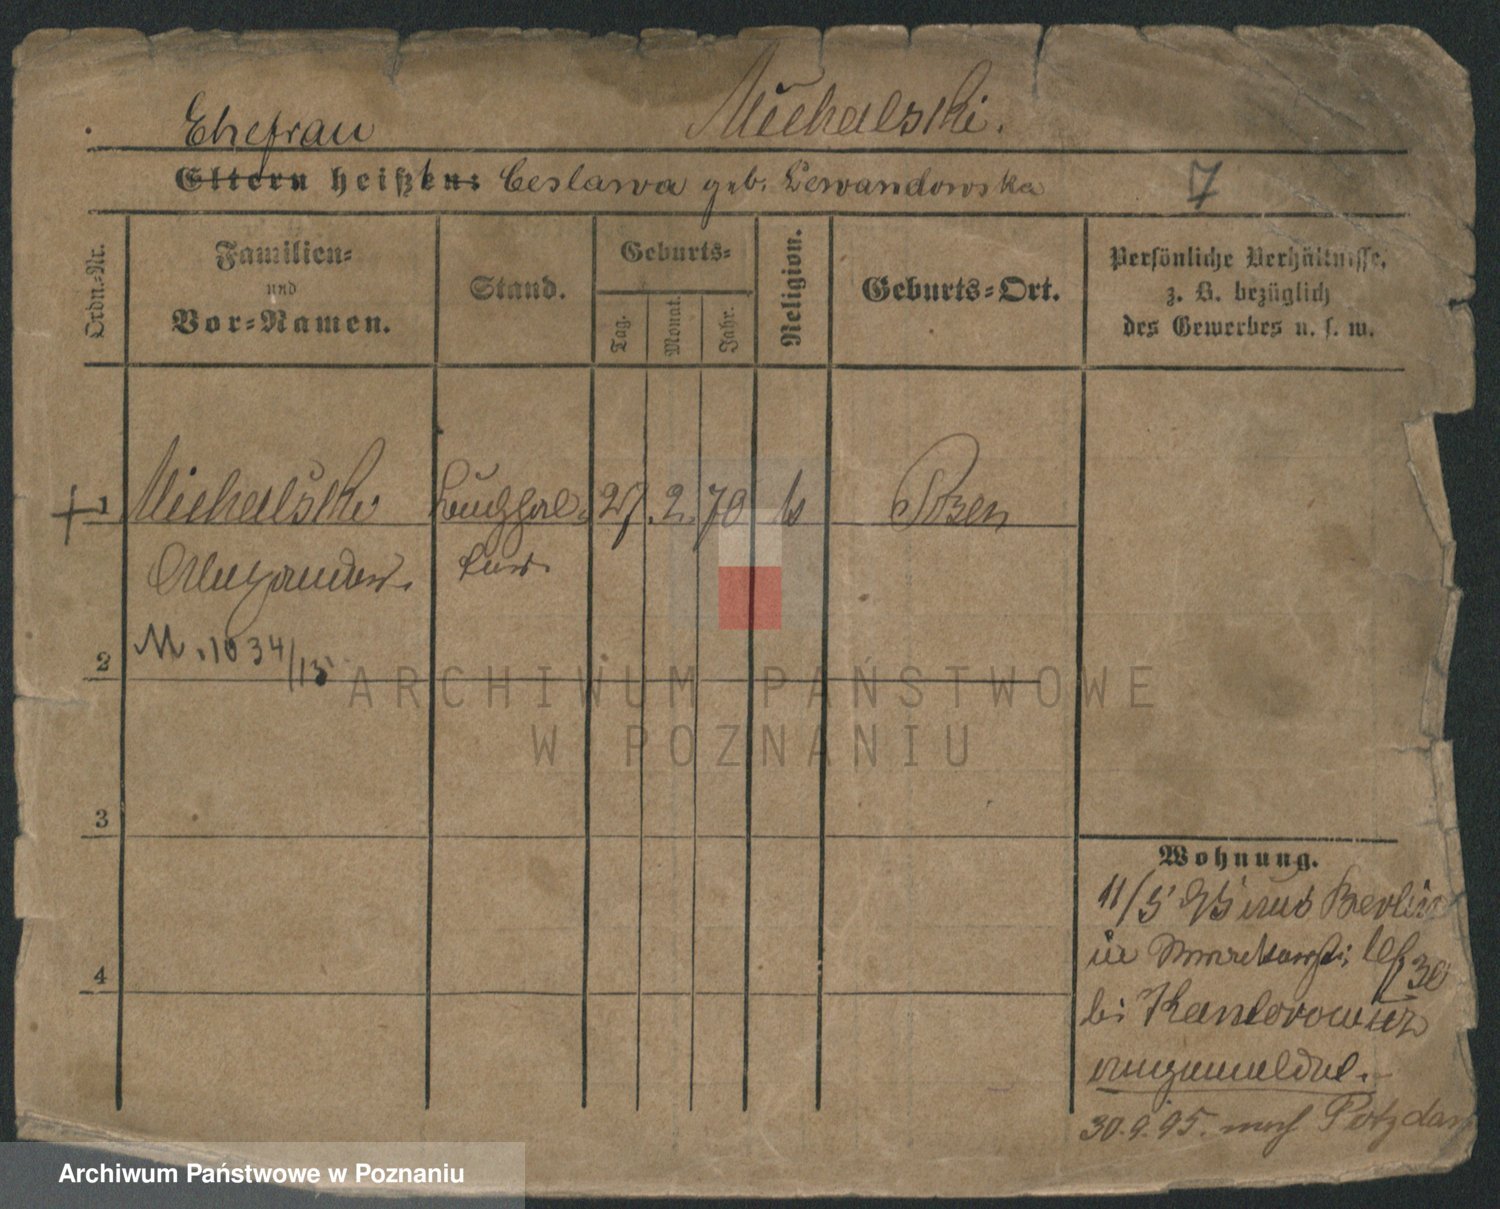 Ehefrau Michalski.
Eltern heißen: Ceslawa geb. Lewandowska
7
Ordn.-Nr.
Familien-
und
Vor-Namen.
Stand.
Geburts-
Tag.
Monat.
Jahr.
Religion.
Geburts-Ort.
Persönliche Verhältnisse,
z. B. bezüglich
des Gewerbes u. s. w.
1 Michalski Buchhal- 27. 2. 70 k Posen
Alexander. ter.
2 M. 1034/13
3
4
Wohnung.
11/5 95 aus Berlin
in 30
bei Kantorowicz
angemeldet.
30.9.95. nach Potzdam
ARCHIWUM PAŃSTWOWE
W POZNANIU
Archiwum Państwowe w Poznaniu